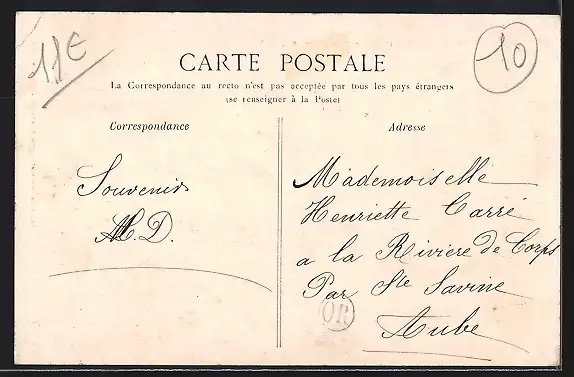 11€
10
CARTE POSTALE
La Correspondance au recto n'est pas acceptée par tous les pays étrangers
(se renseigner à la Poste)
Correspondance
Souvenirs
M.D.
Adresse
Mademoiselle
Henriette Carré
a la Riviere de Corps
Par Ste Savine
Aube
OR